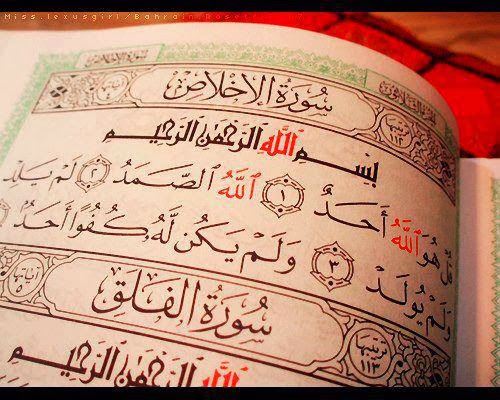 Miss.lexusgirl/Bahrain,
سورة الإخلاص
سُورَةُ الإِخْلَاصِ
بِسْمِ اللَّهِ الرَّحْمَٰنِ الرَّحِيمِ
قُلْ هُوَ اللَّهُ أَحَدٌ ١ اللَّهُ الصَّمَدُ ٢ لَمْ يَلِدْ
وَلَمْ يُولَدْ ٣ وَلَمْ يَكُن لَّهُ كُفُوًا أَحَدٌ
سُورَةُ الْفَلَقِ
ترتيبها ١١٣
بِسْمِ اللَّهِ الرَّحْمَٰنِ الرَّحِيمِ